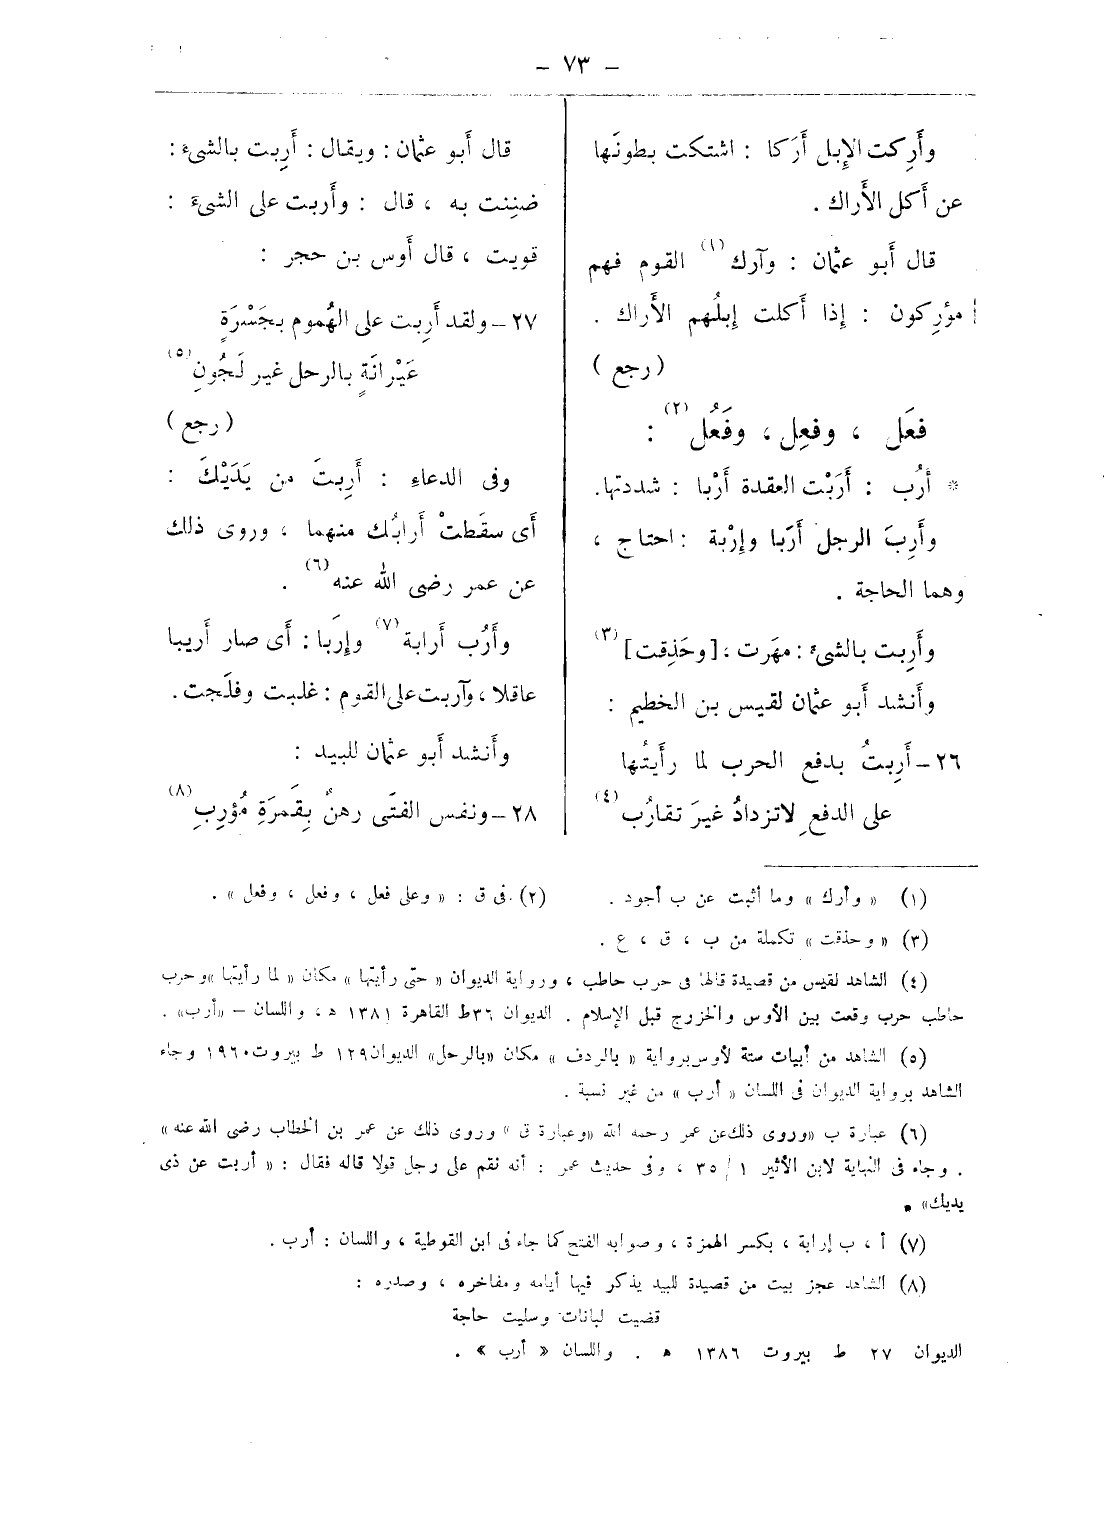 – ٧٣ –
وأَرِكت الإِبل أَرَكا : اشتكت بطونَها
عن أَكل الأَراك .
قال أَبو عثمان : وآرك (١) القوم فهم
مؤرِكون : إِذا أَكلت إِبلُهم الأَراك .
( رجع )
فعَل ، وفعِل ، وفَعُل (٢) :
* أَرُب : أَرَبْت العقدة أَرْبا : شددتها.
وأَرِبَ الرجل أَرَبا وإِرْبة : احتاج ،
وهما الحاجة .
وأَرِبت بالشىء : مهَرت ، [وحَذِقت] (٣)
وأَنشد أَبو عثمان لقيس بن الخطيم :
٢٦ – أَرِبتُ بدفع الحرب لما رأَيتُها
على الدفعِ لاتزدادُ غيرَ تقارُب (٤)
قال أَبو عثمان : ويقال : أَرِبت بالشىء :
ضنِنت به ، قال : وأَربت على الشىء :
قويت ، قال أَوس بن حجر :
٢٧ – ولقد أَرِبت على الهُموم بجَسْرَةٍ
عَيْرانَةٍ بالرحل غير لَجُونِ (٥)
( رجع )
وفى الدعاءِ : أَرِبتَ من يَدَيْكَ :
أَى سقَطتْ أَرابُك منهما ، وروى ذلك
عن عمر رضى الله عنه (٦) .
وأَرُب أَرابة (٧) وإِرَبا : أَى صار أَريبا
عاقلا ، وآربت على القوم : غلبت وفلَجت.
وأَنشد أَبو عثمان للبيد :
٢٨ – ونفس الفتَى رهنٌ بِقَمرَةِ مُؤرِبِ (٨)
(١) « وأرك » وما أثبت عن ب أجود .
(٢) فى ق : « وعلى فعل ، وفعل ، وفعل » .
(٣) « وحذقت » تكملة من ب ، ق ، ع .
(٤) الشاهد لقيس من قصيدة قالها فى حرب حاطب ، ورواية الديوان « حتى رأيتها » مكان « لما رأيتها » وحرب
حاطب حرب وقعت بين الأوس والخزرج قبل الإسلام . الديوان ٣٦ ط القاهرة ١٣٨١ ه ، واللسان – «أرب» .
(٥) الشاهد من أبيات ستة لأوس برواية « بالردف » مكان «بالرحل» الديوان ١٢٩ ط بيروت ١٩٦٠ وجاء
الشاهد برواية الديوان فى اللسان « أرب » من غير نسبة .
(٦) عبارة ب «وروى ذلك عن عمر رحمه الله «وعبارة ق » وروى ذلك عن عمر بن الخطاب رضى الله عنه»
. وجاء فى النهاية لابن الأثير ١ / ٣٥ ، وفى حديث عمر : أنه نقم على رجل قولا قاله فقال : « أربت عن ذى
يديك» .
(٧) أ ، ب إرابة ، بكسر الهمزة ، وصوابه الفتح كما جاء فى ابن القوطية ، واللسان : أرب .
(٨) الشاهد عجز بيت من قصيدة للبيد يذكر فيها أيامه ومفاخره ، وصدره :
قضيت لبانات وسليت حاجة
الديوان ٢٧ ط بيروت ١٣٨٦ ه . واللسان « أرب » .